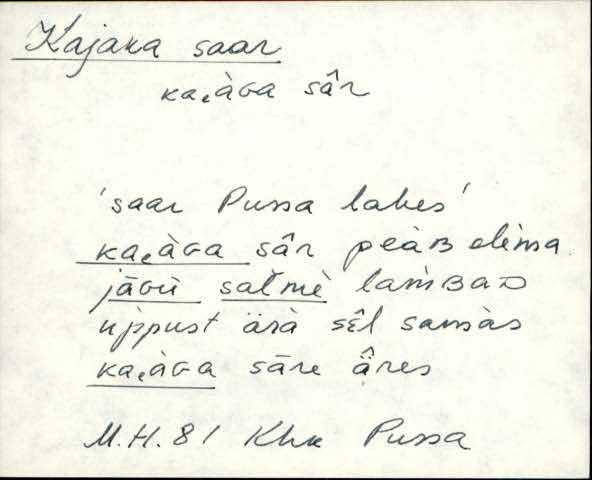 Kajaka saar
kaᴉàɢa sâr
'saar Pussa lahes'
kaᴉàɢa sâr peàʙ olèma
jāɢù salmè lam̀ʙaᴅ
uppust ärà sêl samàs
kaᴉàɢa sāre âres
M.H. 81 Khk Pussa